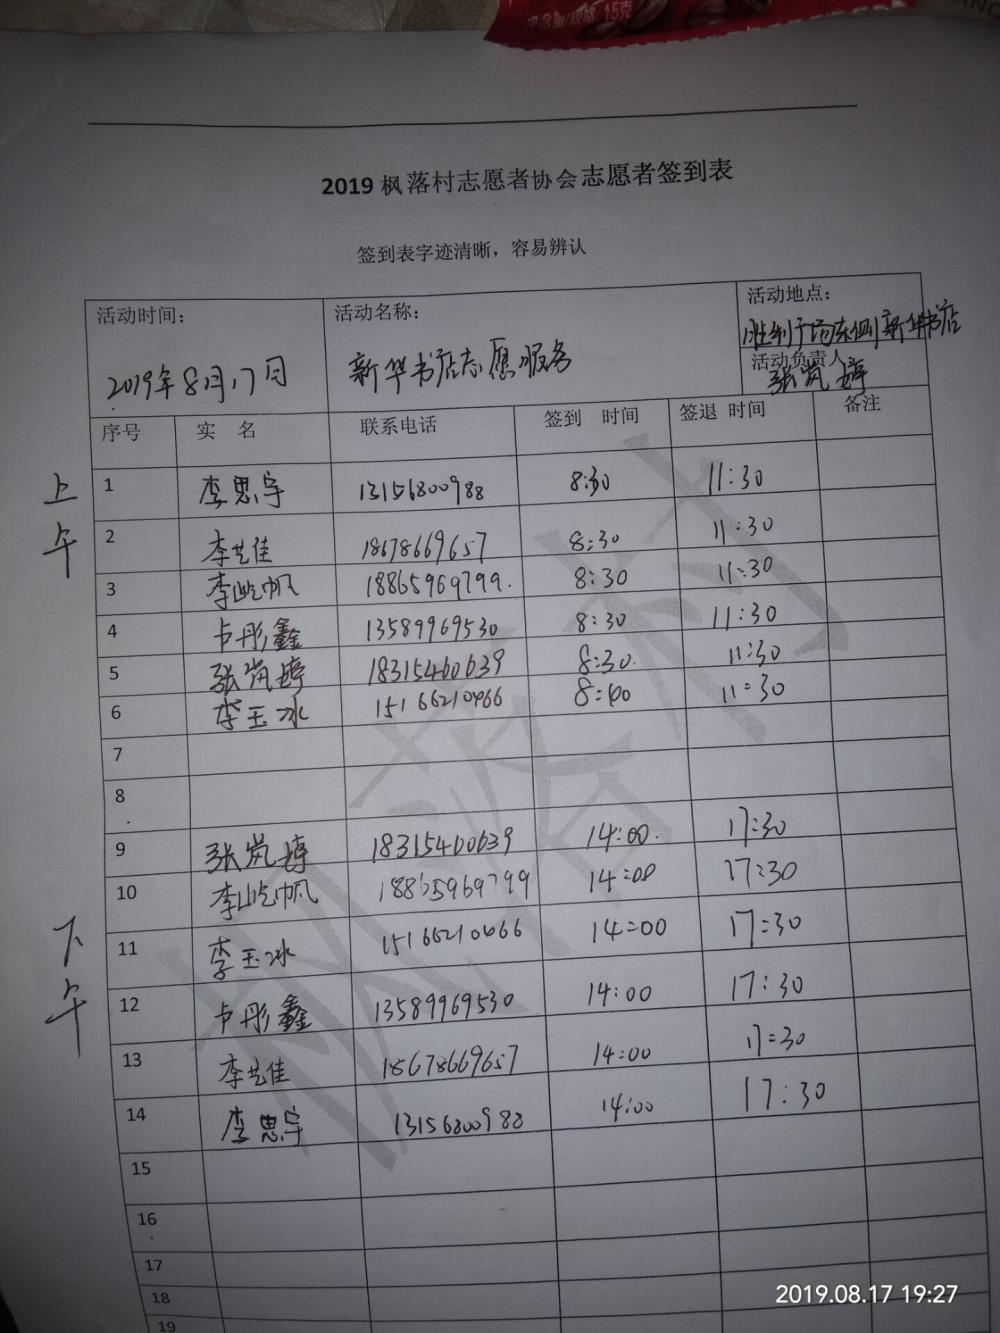 净含量/规格：15克
2019 枫落村志愿者协会志愿者签到表
签到表字迹清晰，容易辨认
活动时间： 活动名称： 活动地点：
2019年8月17日 新华书店志愿服务 胜利广场东侧新华书店
活动负责人
张岚婷
序号 实 名 联系电话 签到 时间 签退 时间 备注
上午
1 李思宇 13156800988 8:30 11:30
2 李艺佳 18678669657 8:30 11:30
3 李屹帆 18865969799. 8:30 11:30
4 卢彤鑫 13589969530 8:30 11:30
5 张岚婷 18315460639 8:30. 11:30
6 李玉冰 15166210466 8:40 11:30
7
8
下午
9 张岚婷 18315460639 14:00. 17:30
10 李屹帆 18865969799 14:00 17:30
11 李玉冰 15166210466 14:00 17:30
12 卢彤鑫 13589969530 14:00 17:30
13 李艺佳 18678669657 14:00 17:30
14 李思宇 13156800988 14:00 17:30
15
16
17
18
19
枫落村
2019.08.17 19:27